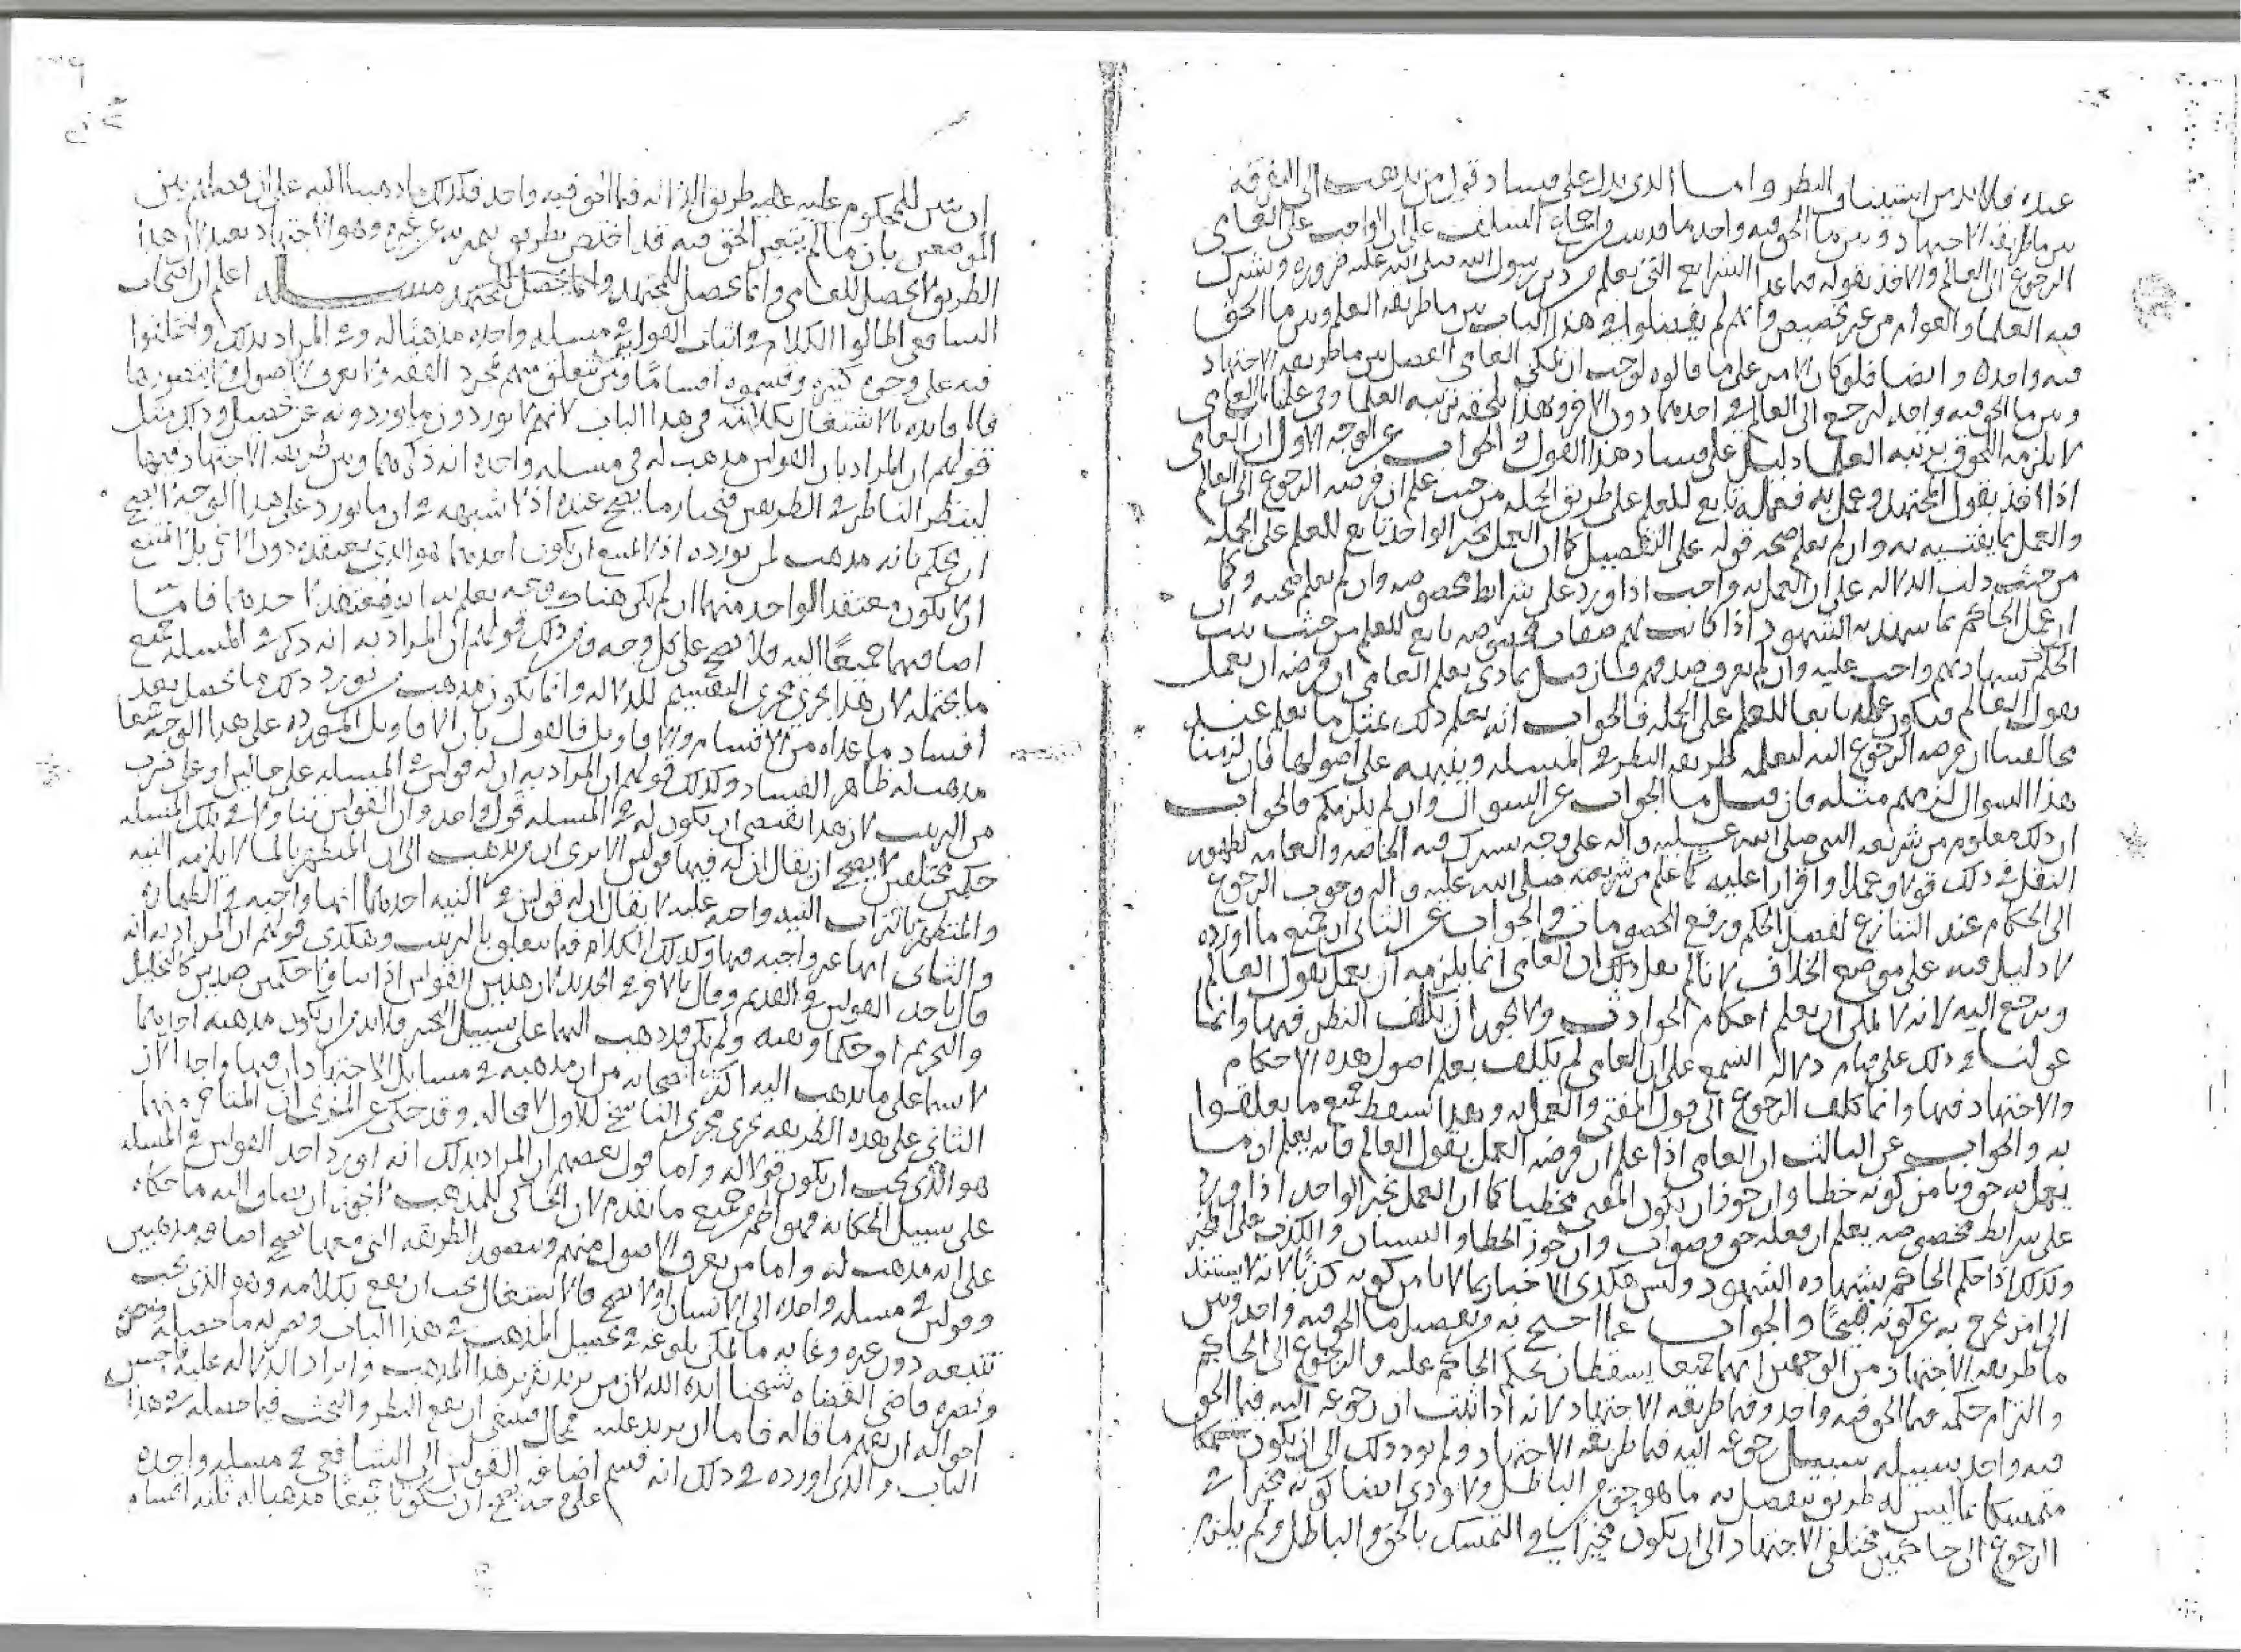 عنده فلا بد من استيناف النظر واما الذى يدل على فساد قول من يذهب الى التفرقة
بين ما طريقه الاجتهاد وبين ما الحق فيه واحد ما قد سبق من اجماع السلف على ان الواجب على العامى
الرجوع الى العالم والاخذ بقوله فيما عدا الشرايع التى تعلم من دين رسول الله صلى الله عليه ضرورة ويشترك
فيه العلما والعوام من غير تخصيص وانهم لم يفصلوا فى هذا الباب بين ما طريقه العلم وبين ما الحق
فيه واحد وايضا فلو كان الامر على ما قالوه لوجب ان يمكن العامى الفصل بين ما طريقه الاجتهاد
وبين ما الحق فيه واحد ليرجع الى العالم فى احدهما دون الاخر وهذا يلحقه برتبه العلما وفى علمنا بان العامى
لا يلزمه اللحوق برتبه العلما دليل على فساد هذا القول والجواب عن الوجه الاول ان العامى
اذا اخذ بقول المجتهد وعمل به فعمله تابع للعلم على طريق الجمله من حيث علم ان فرضه الرجوع الى العالم
والعمل بما يفتيه به وان لم يعلم صحه قوله على التفصيل كما ان العمل بخبر الواحد تابع للعلم على الجمله
من حيث دلت الدلاله على ان العمل به واجب اذا ورد على شرايط مخصوصه وان لم يعلم صحته وكما
ان عمل الحاكم بما يشهد به الشهود اذا كانت لهم صفات مخصوصه تابع للعلم من حيث ثبت ان
الحكم بشهادتهم واجب عليه وان لم يعرف صدقهم فان قيل بماذى يعلم العامى ان فرضه ان يعمل
بقول العالم فيكون عمله تابعا للعلم على الجمله فالجواب انه يعلم ذلك بمثل ما يعلم عند
مخالفينا ان فرضه الرجوع اليه ليعلمه طريقه النظر فى المسله وينبهه على اصولها فان لزمنا
هذا السوال لزمهم مثله فان قيل ما الجواب عن السوال وان لم يلزمكم فالجواب
ان ذلك معلوم من شريعه النبى صلى الله عليه واله على وجه يشترك فيه الخاصه والعامه لظهور
النقل فى ذلك قولا وعملا واقرارا عليه كما علم من شريعته صلى الله عليه واله وجوب الرجوع
الى الحكام عند التنازع لفصل الحكم ورفع الخصومات والجواب عن الثانى ان جميع ما اورده
لا دليل فيه على موضع الخلاف لانا لم نعل ذلك ان العامى انما يلزمه ان يعمل بقول العالم
ويرجع اليه لانه لا يمكن ان يعلم احكام الحوادث ولا يجوز ان يكلف النظر فيها وانما
عولنا فى ذلك على قيام دلاله السمع على ان العامى لم يكلف تعلم اصول هذه الاحكام
والاجتهاد فيها وانما كلف الرجوع الى قول المفتى والعمل به وبهذا يسقط جميع ما تعلقوا
به والجواب عن الثالث ان العامى اذا علم ان فرضه العمل بقول العالم فانه يعلم ان ما
يعمل به حق ويامن كونه خطا وان جوز ان يكون المفتى مخطيا كما ان العمل بخبر الواحد اذا ورد
على شرايط مخصوصه يعلم ان فعله حق وصواب وان جوز الخطا والنسيان والكذب على المخبر
وكذلك اذا حكم الحاكم بشهاده الشهود وليس هكذى الاخبار بما لا يامن كونه كذبا لانه لا يستند
الى امر يخرج به عن كونه قبيحا والجواب عما احتج به من تفصيل ما الحق فيه واحد وبين
ما طريقه الاجتهاد من الوجهين انهما جميعا يسقطان بحكم الحاكم عليه والرجوع الى الحاكم
والتزام حكمه فيما الحق فيه واحد وفيما طريقه الاجتهاد لانه اذا ثبت ان رجوعه اليه فيما الحق
فيه واحد سبيله سبيل رجوعه اليه فيما طريقه الاجتهاد ولم يود ذلك الى ان يكون
متمسكا بما ليس له طريق يفصل به ما هو حق من الباطل ولا يودى ايضا كونه مخيرا فى
الرجوع الى حاكمين مختلفى الاجتهاد الى ان يكون مخيرا فى التمسك بالحق والباطل ولم يلزم
ان يتبين للمحكوم عليه طريق الدلاله فيما الحق فيه واحد فكذلك ما ذهبنا اليه على ان
الموضعين بان ما لم يتعين الحق فيه قد اختص بطريق يميز به عن غيره وهو الاجتهاد بعيد لان هذا
الطريق لا يحصل للعامى وانما يحصل للمجتهد مسله اعلم ان اصحاب
الشافعى اطالوا الكلام فى اثبات القولين فى مسله واحده مذهبا له وفى المراد بذلك واختلفوا
فيه على وجوه كثيره وقسموه اقساما فمن تعلق منهم بمجرد الفقه ولا يعرف الاصول ولا يتصورها
فلا فايده بالاشتغال بكلامه فى هذا الباب لانهم لا يوردون ما يوردونه عن تحصيل وذلك مثل
قولهم ان المراد بان القولين مذهب له فى مسله واحده انه ذكرهما وبين طريقه الاجتهاد فيهما
لينظر الناظر فى الطريقين فيختار ما يصح عنده اذ لا شبهه فى ان ما يورد على هذا الوجه لا يصح
ان يحكم بانه مذهب لمن يورده اذ لا يمتنع ان يكون احدهما هو الذى يعتقده دون الاخر بل لا يمتنع
ان لا يكون معتقدا لواحد منهما ان لم يكن هناك وجه يعلم به انه معتقد لاحدهما فاما
اضافتهما جميعا اليه فلا تصح على كل وجه ومن ذلك قولهم ان المراد به انه ذكر فى المسله جميع
ما يحتمله لان هذا يجرى مجرى التقسيم للدلاله وانما يكون مذهب من يورد ذلك ما يحصل بعد
افساد ما عداه من الاقسام والاقاويل فالقول بان الاقاويل المورده على هذا الوجه جميعا
مذهب له ظاهر الفساد وكذلك قولهم ان المراد به ان له قولين فى المسله على حالين او على ضرب
من الترتيب لان هذا يقتضى ان يكون له فى المسله قول واحد وان القولين تناولا فى تلك المسله
حكمين مختلفين لا يصح ان يقال ان له فيها قولين الا ترى ان من يذهب الى ان المتطهر بالما لا يلزمه النيه
والمتطهر بالتراب النيه واجبه عليه لا يقال ان له قولين فى النيه احدهما انها واجبه فى الطهاره
والثانى انها غير واجبه فيها وكذلك الكلام فيما يتعلق بالترتيب وهكذى قولهم ان المراد به انه
قال باحد القولين فى القديم وقال بالاخر فى الجديد لان هذين القولين اذا تناولا حكمين ضدين كالتحليل
والتحريم او حكما ونفيه ولم يكن قد ذهب اليهما على سبيل التخيير فلا بد من ان يكون مذهبه احدهما
لا سيما على ما يذهب اليه اكثر اصحابه من ان مذهبه فى مسايل الاجتهاد ان فيها واحدا لان
الثانى على هذه الطريقه يجرى مجرى الناسخ للاول لا محاله وقد حكى عن المزنى ان المتاخر منهما
هو الذى يجب ان يكون قولا له واما قول بعضهم ان المراد بذلك انه اورد احد القولين فى المسله
على سبيل الحكايه فهو اظهر من جميع ما تقدم لان الحاكى للمذهب لا يجوز ان يضاف اليه ما حكاه
على انه مذهب له واما من يعرف الاصول منهم ويتصور الطريقه التى معها تصح اضافه مذهبين
وقولين فى مسله واحده الى الانسان او لا تصح فالاشتغال يجب ان يقع بكلامه وهو الذى يجب
تتبعه دون غيره وغايه ما يمكن بلوغه فى تحصيل المذهب فى هذا الباب ونصرته ما حصله
ونصره قاضى القضاه شيخنا ايده الله لان من يريد تقرير هذا المذهب وايراد الدلاله عليه فاحسن
احواله ان يفهم ما قاله فاما ان يزيد عليه فمحال فينبغى ان يقع النظر والبحث فيما حصله فى هذا
الباب والذى اورده فى ذلك انه قسم اضافه القولين الى الشافعى فى مسله واحده
على وجه يصح ان يكونا جميعا مذهبا له ثلثه اقسام